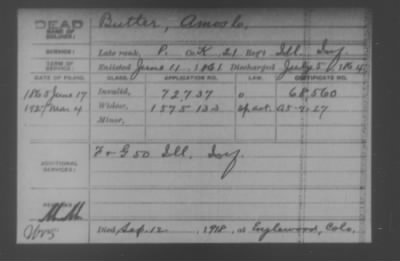 DEAD
NAME OF SOLDIER:
Butter, Amos Lo,
SERVICE:
Late rank, P. Co. K, 21 Reg't Ill. Inf.
TERM OF SERVICE:
Enlisted June 11, 1861 Discharged July 5, 1864
DATE OF FILING. CLASS. APPLICATION NO. LAW. CERTIFICATE NO.
1865 June 17 Invalid, 72737 68,560
Mar 4 Widow,
Minor,
ADDITIONAL SERVICES:
F & G 50 Ill. Inf.
REMARKS:
Died Sep. 12, 1918, at Englewood, Colo.